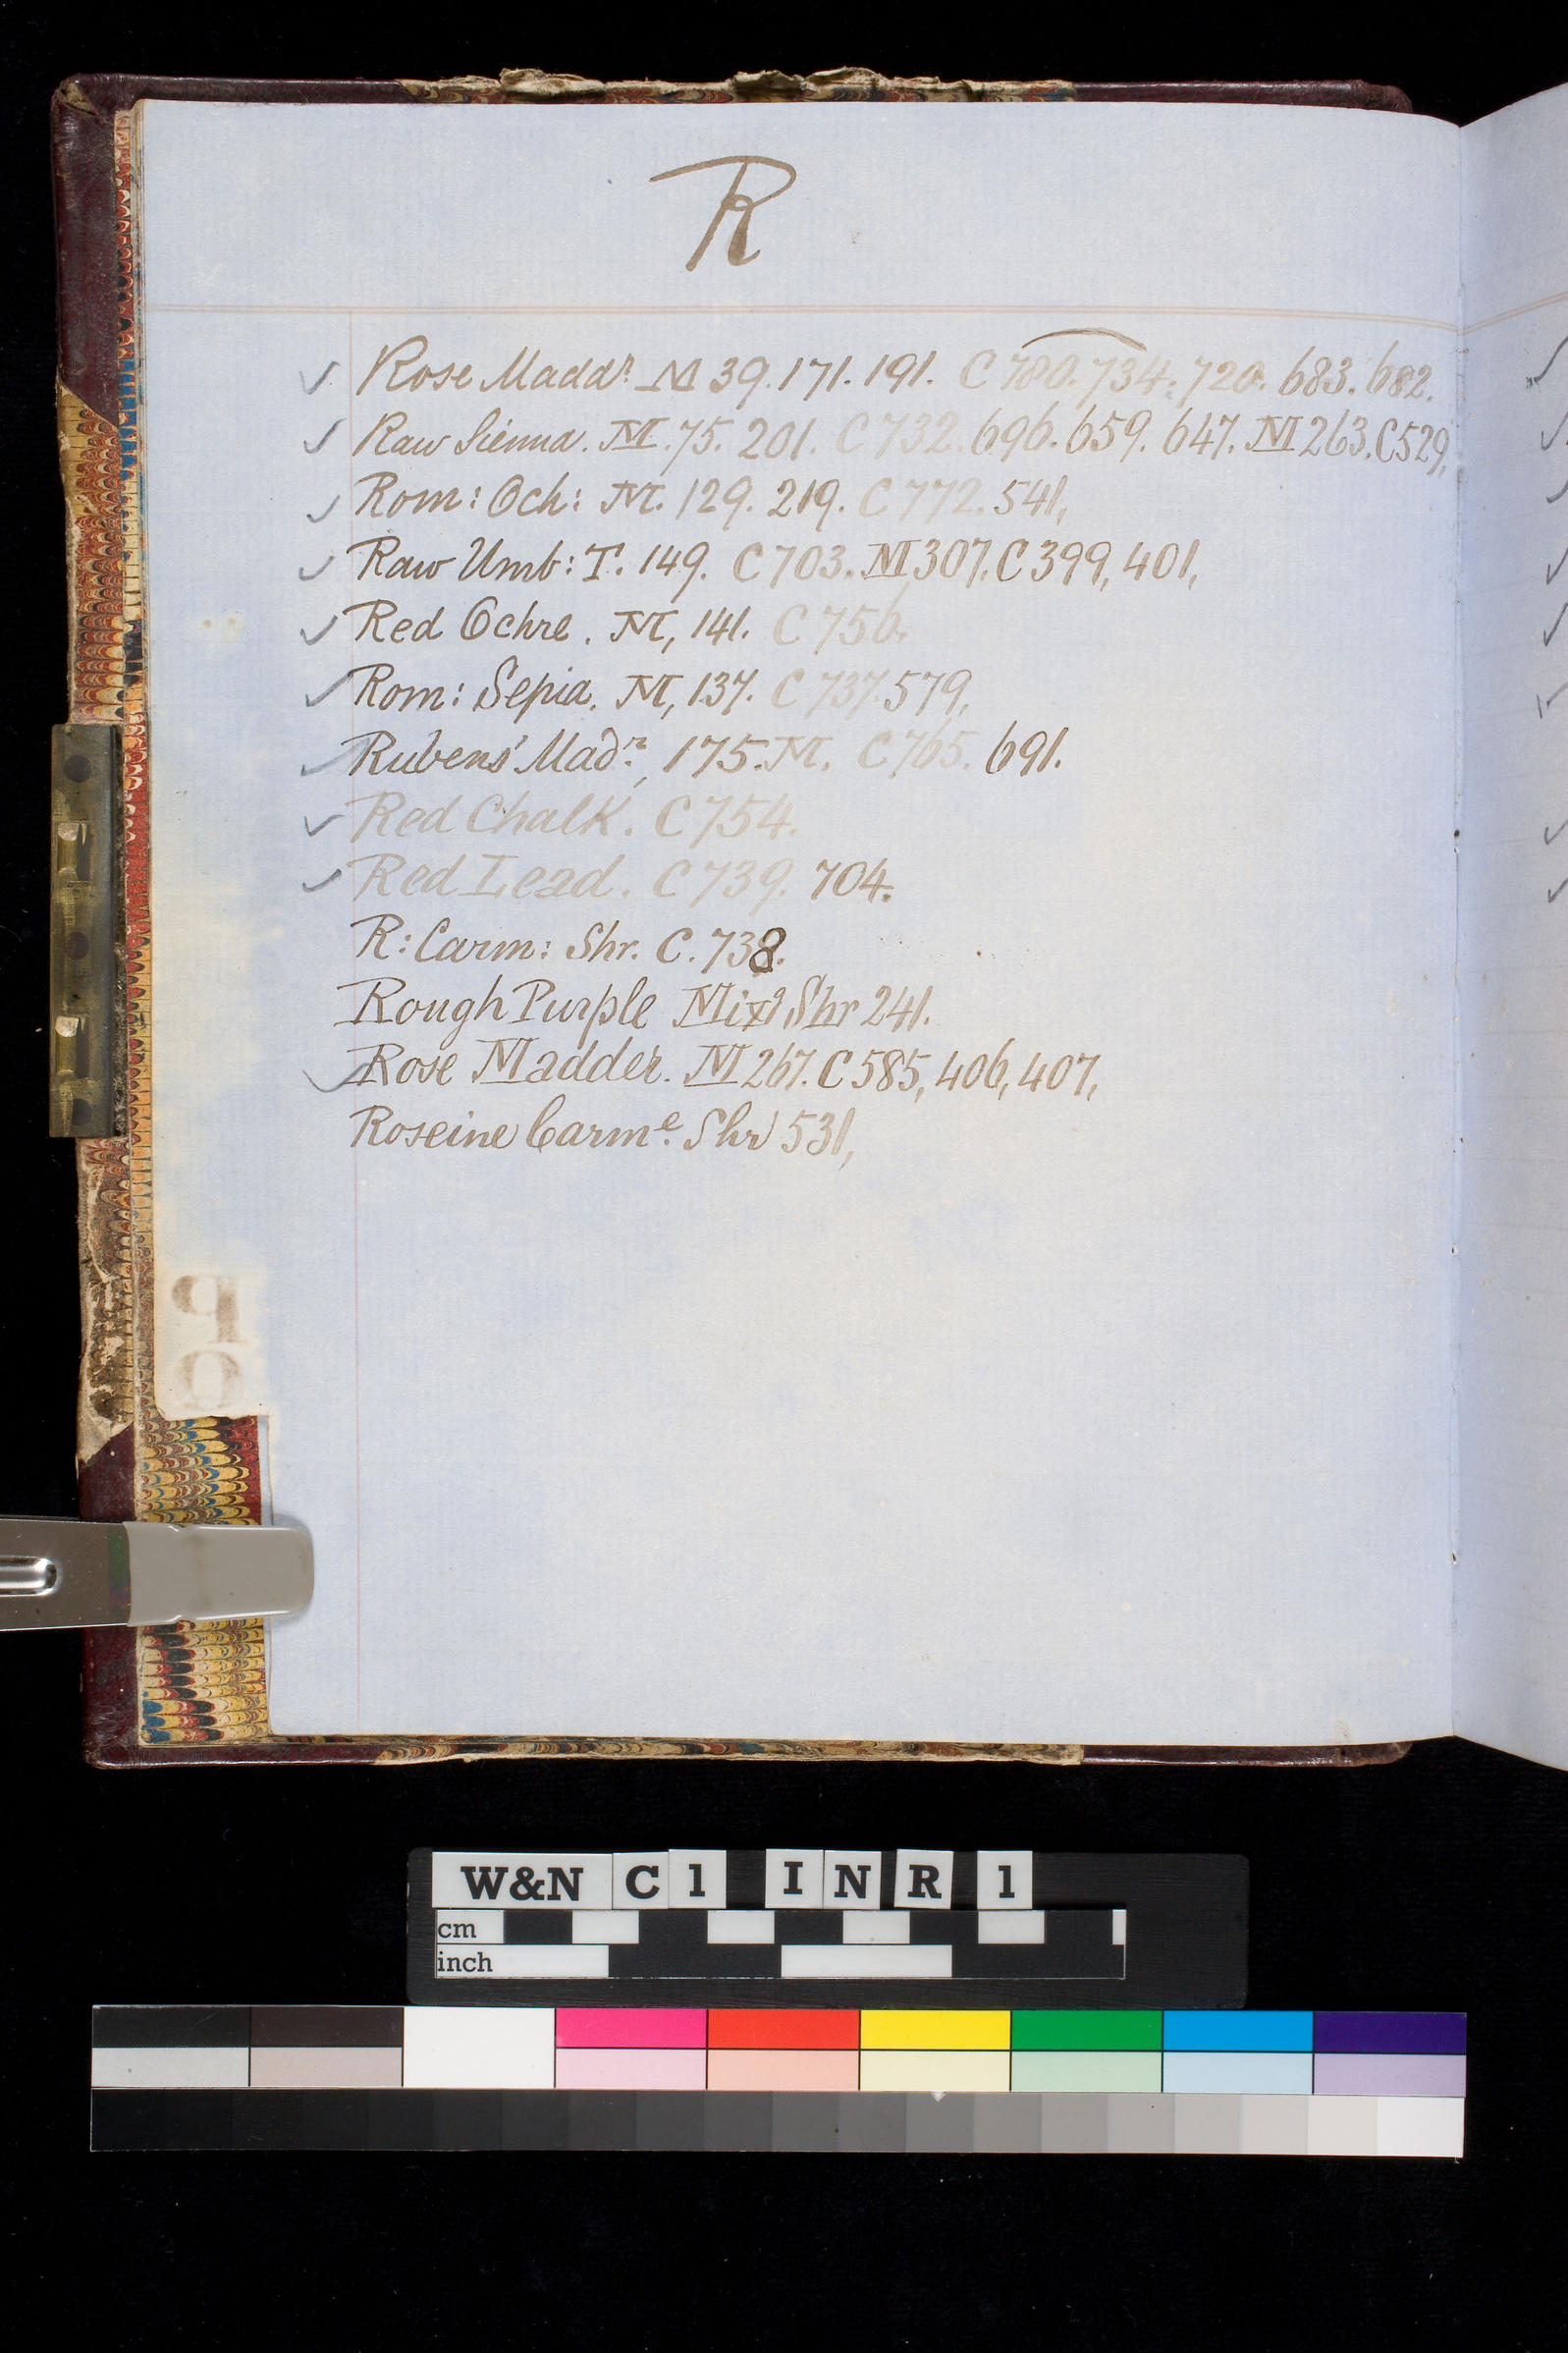 R
✓ Rose Maddr. M 39. 171. 191. C 780. 734. 720. 683. 682.
✓ Raw Sienna. M. 75. 201. C 732. 696. 659. 647. M 263. C 529,
✓ Rom: Och: M. 129. 219. C 772. 541,
✓ Raw Umb: T. 149. C 703. M 307. C 399, 401,
✓ Red Ochre. M, 141. C 756.
✓ Rom: Sepia. M, 137. C 737. 579,
✓ Rubens' Madr., 175. M. C 765. 691.
✓ Red Chalk. C 754.
✓ Red Lead. C 739. 704.
R: Carm: Shr. C. 738.
Rough Purple Mixd Shr 241.
✓ Rose Madder. M 267. C 585, 406, 407,
Roseine Carme. Shr 531,
P
O
W&N C1 INR 1
cm
inch